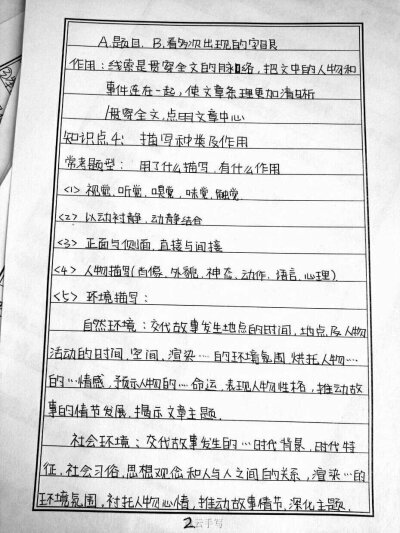 A.题目. B.看多次出现的字眼
作用：线索是贯穿全文的脉络，把文中的人物和
事件连在一起，使文章条理更加清晰
/贯穿全文，点明文章中心
知识点4：描写种类及作用
常考题型：用了什么描写，有什么作用
<1> 视觉、听觉、嗅觉、味觉、触觉.
<2> 以动衬静，动静结合
<3> 正面与侧面，直接与间接
<4> 人物描写(肖像、外貌、神态、动作、语言、心理)
<5> 环境描写：
自然环境：交代故事发生地点的时间，地点及人物
活动的时间、空间，渲染…的环境氛围 烘托人物…
的…情感，预示人物的…命运，表现人物性格，推动故
事的情节发展，揭示文章主题.
社会环境：交代故事发生的…时代背景，时代特
征，社会习俗，思想观念和人与人之间的关系，渲染…的
环境氛围，衬托人物心情，推动故事情节，深化主题.
2
云手写